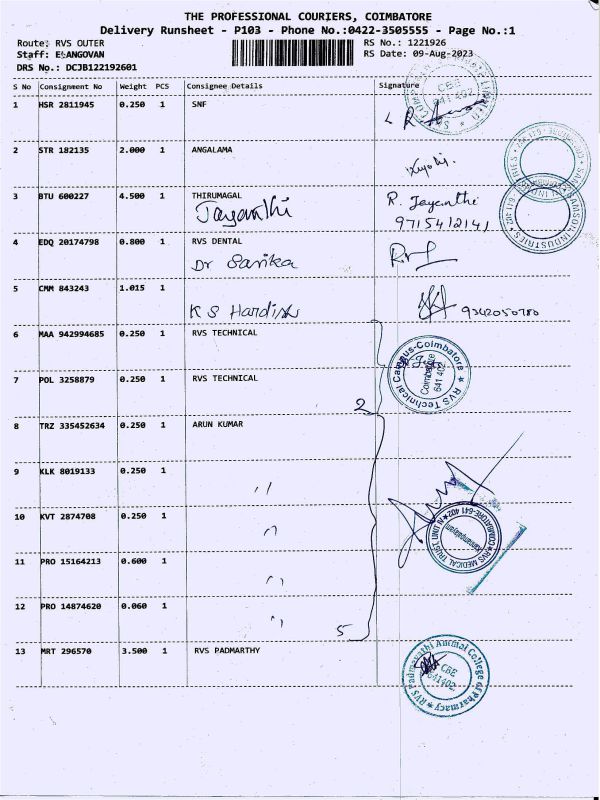 THE PROFESSIONAL COURIERS, COIMBATORE
Delivery Runsheet - P103 - Phone No.:0422-3505555 - Page No.:1
Route: RVS OUTER RS No.: 1221926
Staff: ELANGOVAN RS Date: 09-Aug-2023
DRS No.: DCJB122192601
S No Consignment No Weight PCS Consignee Details Signature
1 HSR 2811945 0.250 1 SNF
CBE
641 402
2 STR 182135 2.000 1 ANGALAMA
3 BTU 600227 4.500 1 THIRUMAGAL R. Jayanthi
Jayanthi 9715412141
4 EDQ 20174798 0.800 1 RVS DENTAL
Dr Sarika
5 CMM 843243 1.015 1
K S Hardish 9342050780
6 MAA 942994685 0.250 1 RVS TECHNICAL
RVS Technical Campus-Coimbatore
Coimbatore
641 402
7 POL 3258879 0.250 1 RVS TECHNICAL
2
8 TRZ 335452634 0.250 1 ARUN KUMAR
9 KLK 8019133 0.250 1 "
10 KVT 2874708 0.250 1 "
RVS MEDICAL TRUST UNIT
COIMBATORE-641 402
Kannampalayam
11 PRO 15164213 0.600 1 "
12 PRO 14874620 0.060 1 "
5
13 MRT 296570 3.500 1 RVS PADMARTHY
RVS Padmavathi Ammal College of Pharmacy
CBE
641402